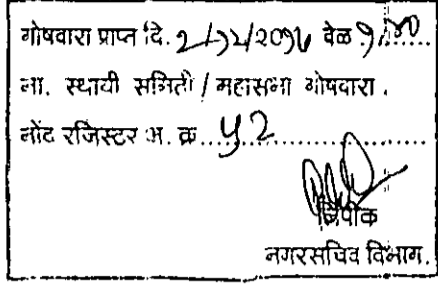 गोषवारा प्राप्त दि. २/१२/२०१५ वेळ १.४०
ना. स्थायी समिती / महासभा गोषवारा.
नोंद रजिस्टर अ. क्र. ५२
लिपीक
नगरसचिव विभाग.